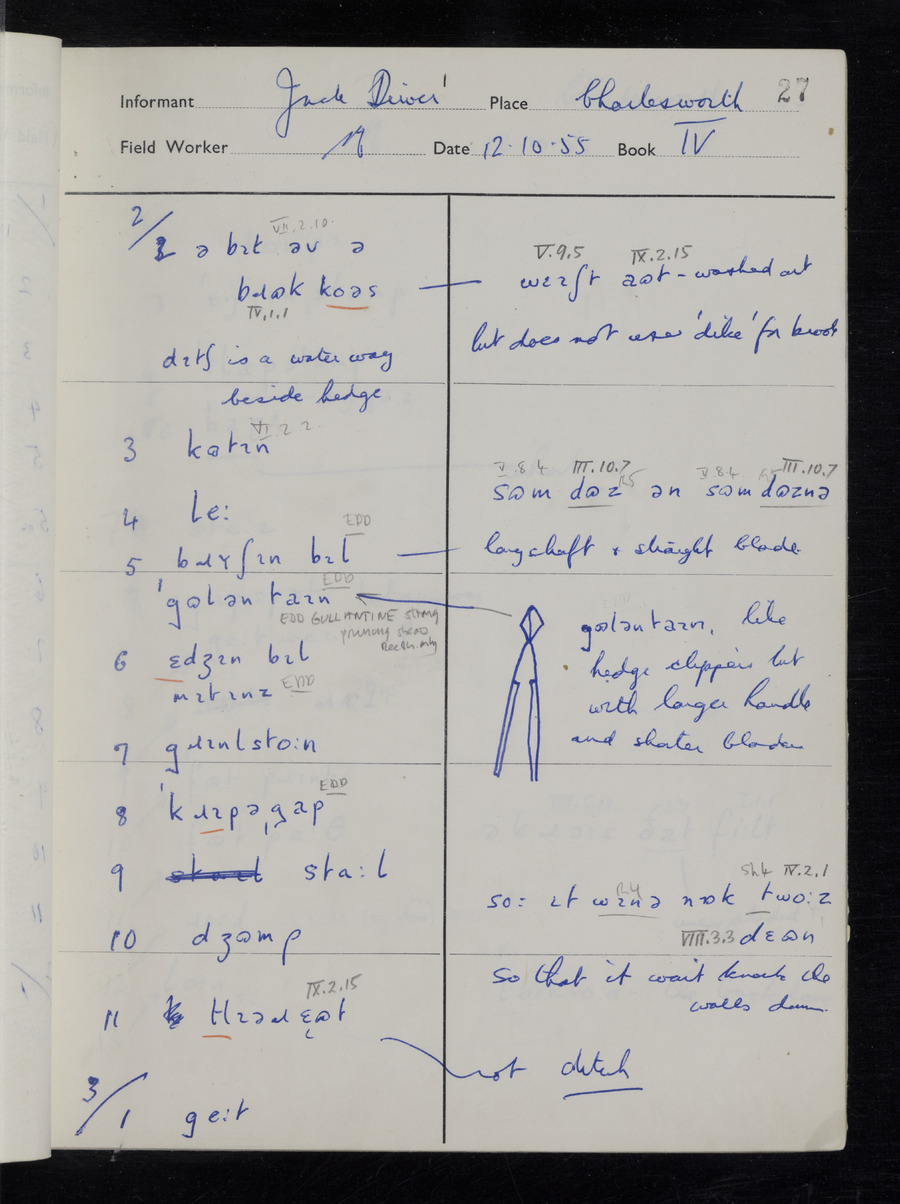 27
Informant Jack Driver Place Charlesworth
Field Worker Date 12·10·55 Book IV
2/
VII.2.10
2 ə bɪt əv ə
bɹʊk kɔəs
IV.1.1
V.9.5 IX.2.15
aʊt - washed out
but does not use 'dike' for brook
dɪtʃ is a water way
beside hedge
VI 2 2
3 katɪn
4 le:
V.8.4 III.10.7 V.8.4 III.10.7
sʊm dʊz ən sʊm dʊznə
EDD
5 bɹʏʃɪn bɪl
long shaft & straight blade
EDD
ˈgʊlənˌtaɪn
EDD GULLANTINE strong
pruning shears
gʊləntaɪn, like
hedge clippers but
with larger handle
and shorter blades
6 ɛdʒɪn bɪl
mɪtɪnz EDD
7 gɹɪnlsto:n
EDD
8 ˈkɹɪpəˌgap
9 sta:l
Sh4 IV.2.1
so: ɪt wɪnə nɒk two:z
VIII.3.3 dɛʊn
10 dʒʊmp
so that it wait knock the
walls down.
IX.2.15
11 tlɪəɹ ɛʊt
not ditch
3/
1 ge:t